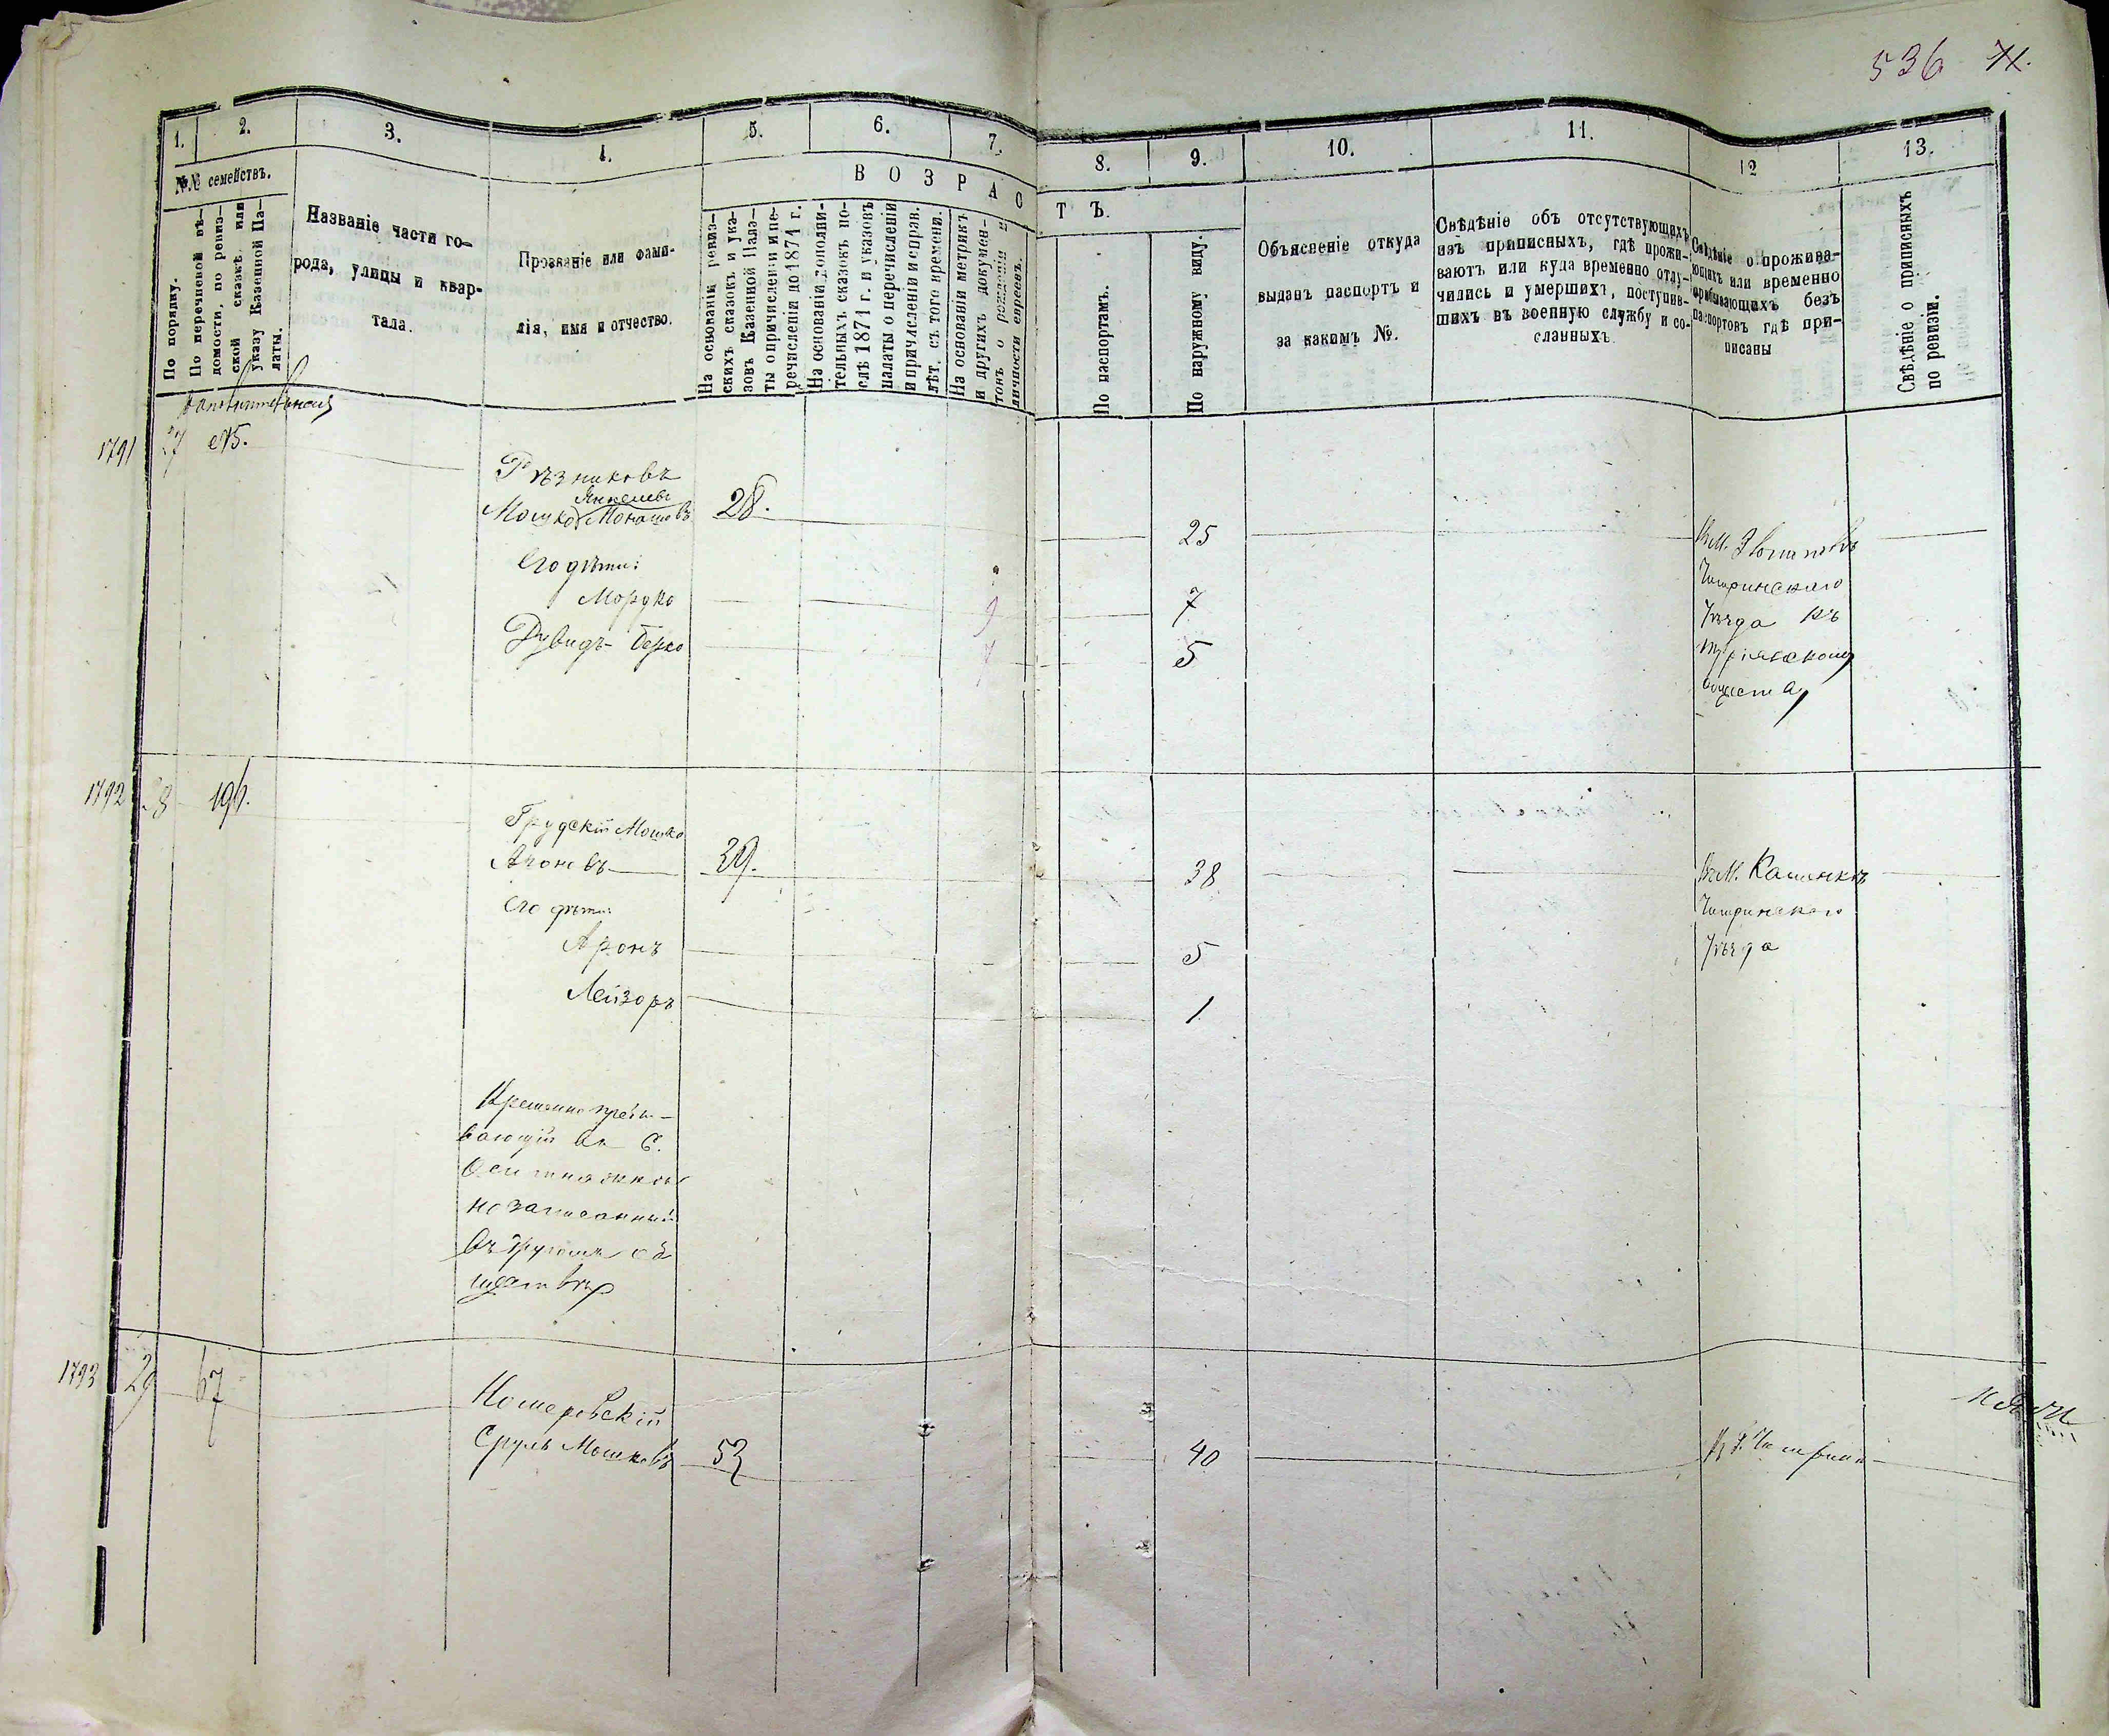 536
1.
2.
3.
4.
5.
6.
7.
8.
9.
10.
11.
12
13.
№№ семействъ.
По порядку.
По перечневой вѣ-
домости, по ревиз-
ской сказкѣ или
указу Казенной Па-
латы.
Названіе части го-
рода, улицы и квар-
тала.
Прозваніе или фами-
лія, имя и отчество.
В О З Р А С
Т Ъ.
На основаніи ревиз-
скихъ сказокъ и ука-
зовъ Казенной Пала-
ты о причисленіи и пе-
речисленіи до 1874 г.
На основаніи дополни-
тельныхъ сказокъ по-
слѣ 1874 г. и указовъ
палаты о перечисленіи
и причисленіи и справ.
лѣт. съ того времени.
На основаніи метрикъ
и другихъ докумен-
товъ о рожденіи и
личности евреевъ.
По паспортамъ.
По наружному виду.
Объясненіе откуда
выданъ паспортъ и
за какимъ №.
Свѣдѣніе объ отсутствующихъ
изъ приписныхъ, гдѣ прожи-
ваютъ или куда временно отлу-
чились и умершихъ, поступив-
шихъ въ военную службу и со-
сланныхъ.
Свѣдѣніе о прожива-
ющихъ или временно
пребывающихъ безъ
паспортовъ гдѣ при-
писаны
Свѣдѣніе о приписныхъ
по ревизіи.
1791 27
Рѣзниковъ
Янкелевъ
Мошко Монашовъ 28. 25
Его дѣти:
Мордко 9 7
Дувидъ-Берко 7 5
Чигиринскаго
Уѣзда къ
1792 28
Грудскій Мошко
Ароновъ 39. 38 Въ М. Каменкѣ
Его дѣти: Чигиринскаго
Аронъ 5 Уѣзда
Лейзоръ 1
вающій въ С.
но записанный
въ другомъ об
ществѣ
1793 29 67
Комеровскій
Сруль Мошковъ 53 40